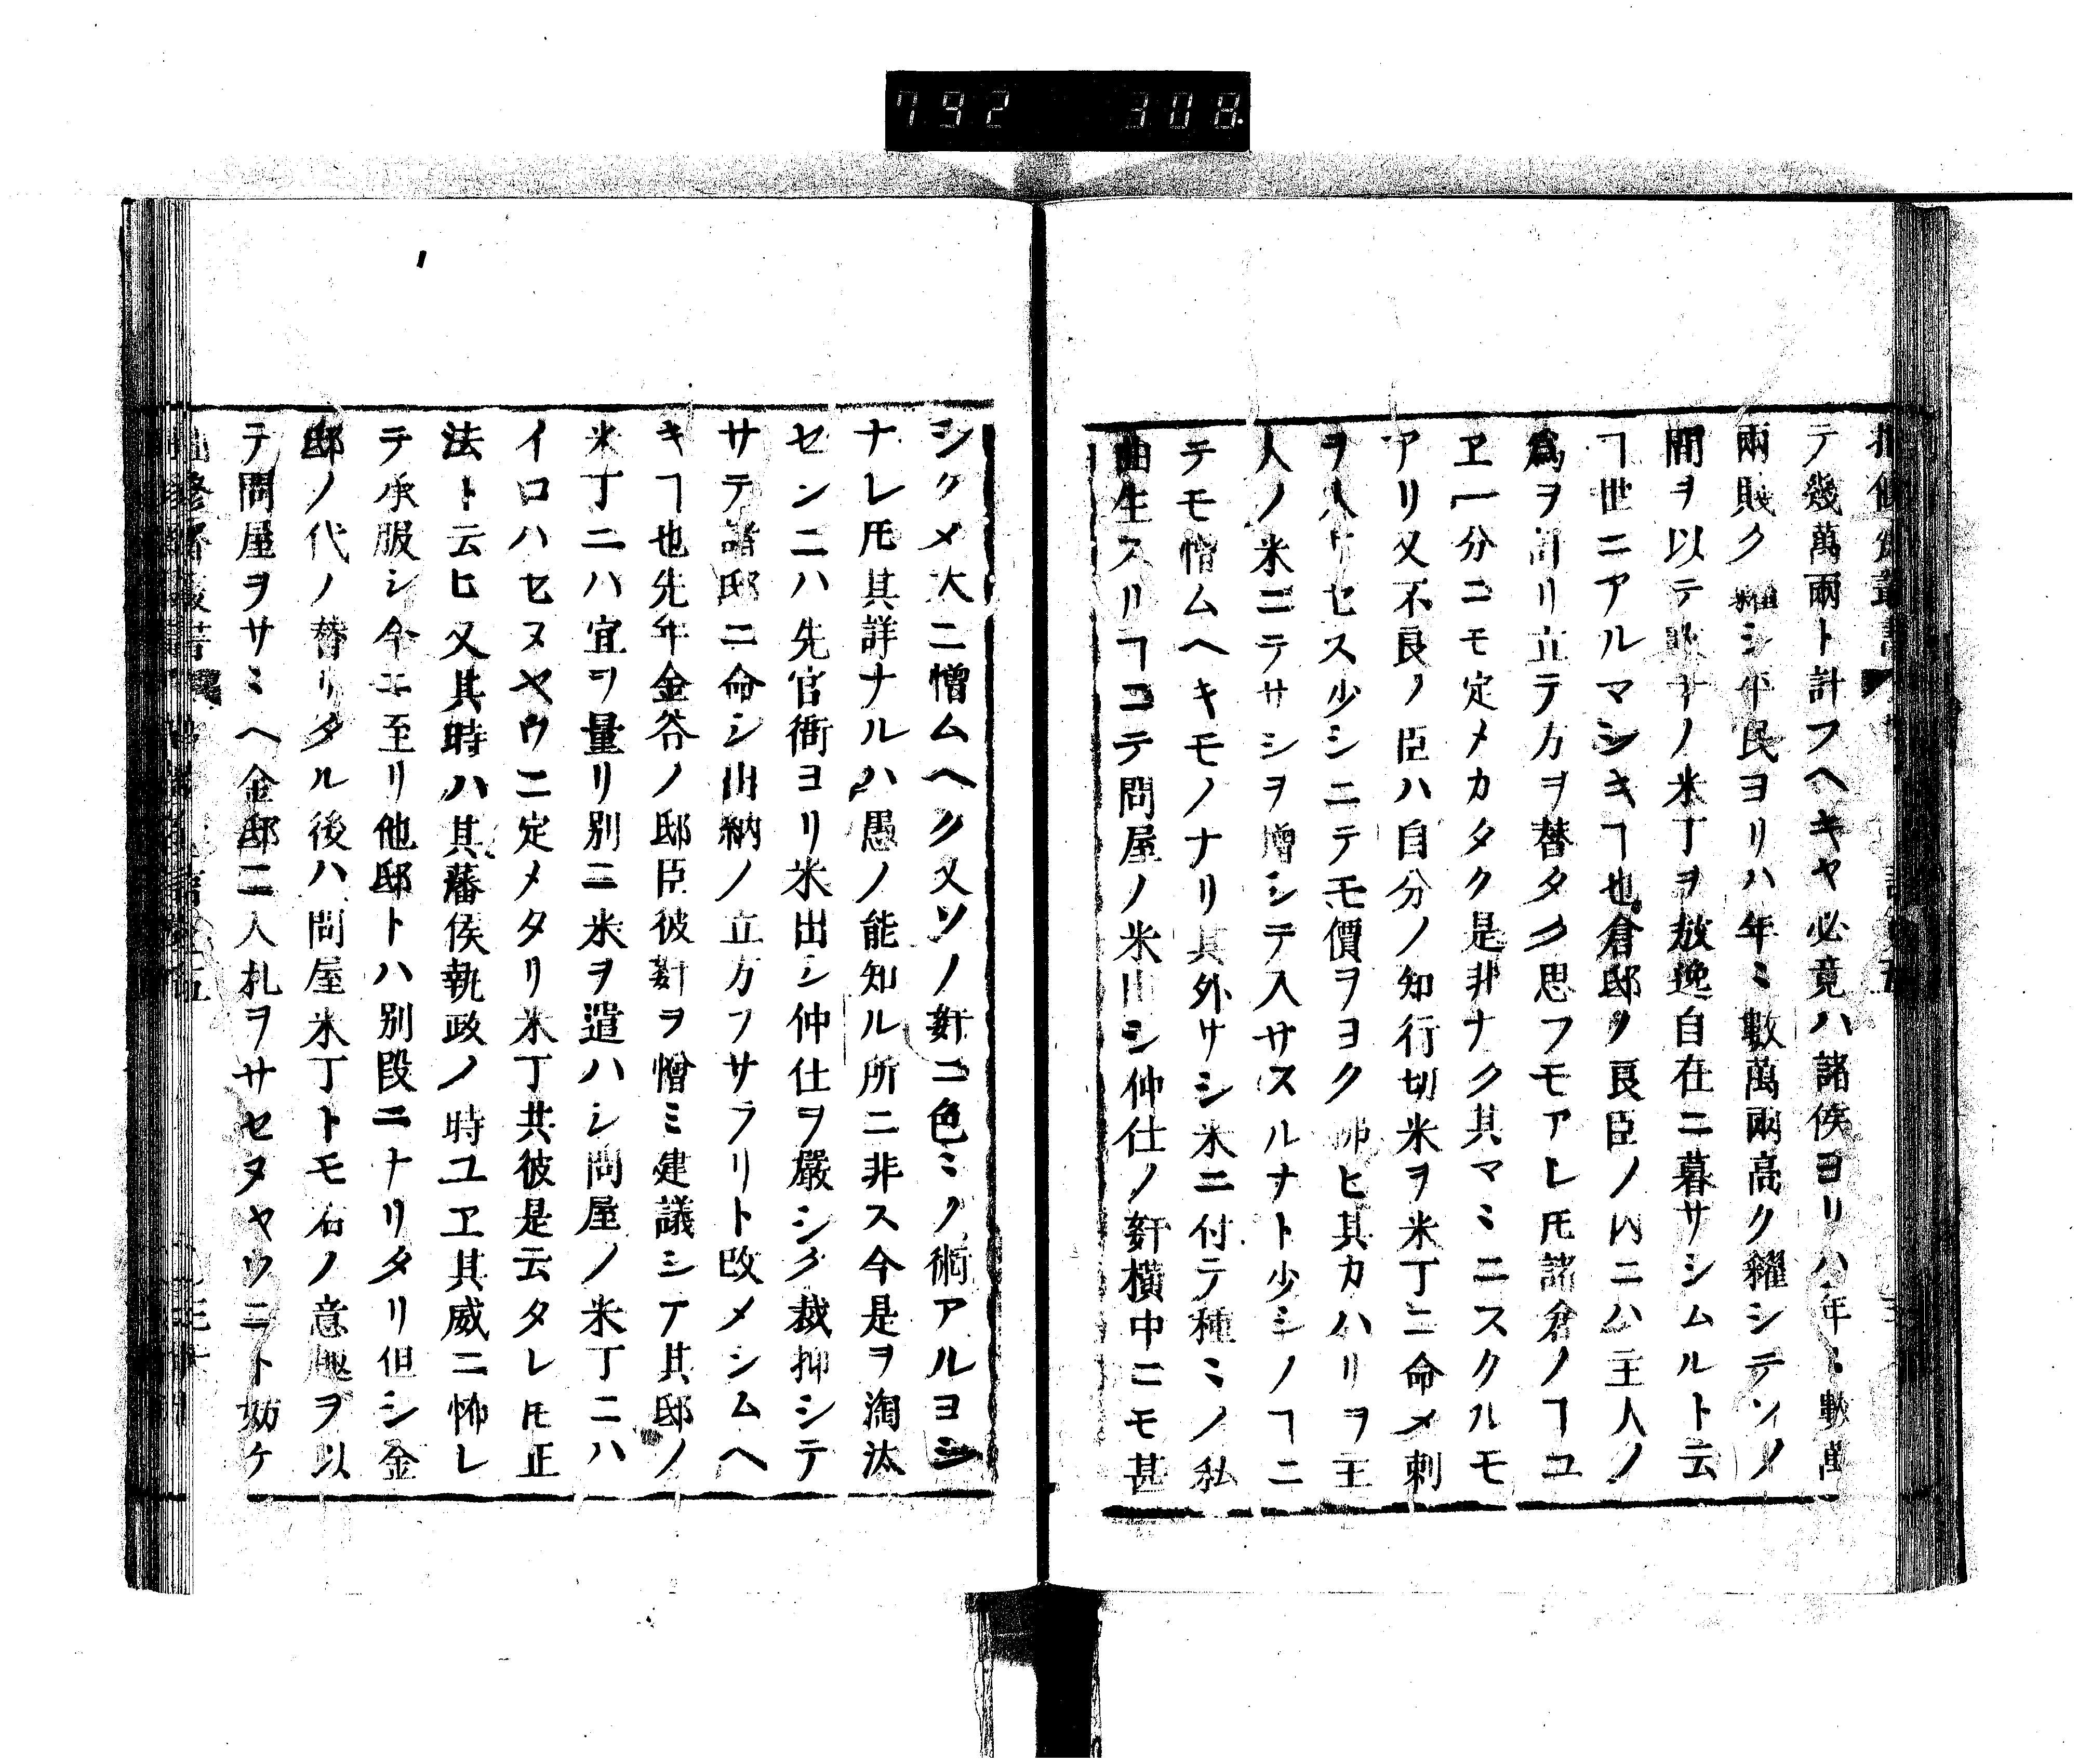 792 308
テ幾萬兩ト計フヘキヤ必竟ハ諸侯ヨリハ年〻數萬
兩賎ク糶シ平民ヨリハ年〻數萬兩高ク糴シテソノ
間ヲ以テ ノ米丁ヲ放逸自在ニ暮サシムルト云
ヿ世ニアルマシキヿ也倉邸ノ良臣ノ内ニハ主人ノ
爲ヲ計リ立テ方ヲ替タク思フモアレ𪜈諸倉ノヿユ
ヱ一分ニモ定メカタク是非ナク其マヽニスクルモ
アリ又不良ノ臣ハ自分ノ知行切米ヲ米丁ニ命メ刺
ヲ入サセス少シニテモ價ヲヨク沸ヒ其カハリヲ主
人ノ米ニテサシヲ増シテ入サスルナト少シノヿニ
テモ惜ムヘキモノナリ其外サシ米ニ付テ種〻ノ私
曲生スリヿコテ問屋ノ米出シ仲仕ノ姧横中ニモ甚
シクメ大ニ憎ムヘク又ソノ姧ニ色〻ノ術アルヨシ
ナレ𪜈其詳ナルハ愚ノ能知ル所ニ非ス今是ヲ淘汰
センニハ先官衙ヨリ米出シ仲仕ヲ嚴シク裁抑シテ
サテ諸邸ニ命シ出納ノ立方フサラリト改メシムヘ
キヿ也先年金谷ノ邸臣彼姧ヲ憎ミ建議シテ其邸ノ
米丁ニハ宜ヲ量リ別ニ米ヲ遣ハシ問屋ノ米丁ニハ
イロハセヌヤウニ定メタリ米丁共彼是云タレ𪜈正
法ト云ヒ又其時ハ其藩侯執政ノ時ユヱ其威ニ怖レ
テ承服シ今ニ至リ他邸トハ別段ニナリタリ但シ金
邸ノ代ノ替リタル後ハ問屋米丁トモ右ノ意趣ヲ以
テ問屋ヲサミヘ金邸ニ入札ヲサセヌヤウニト妨ケ